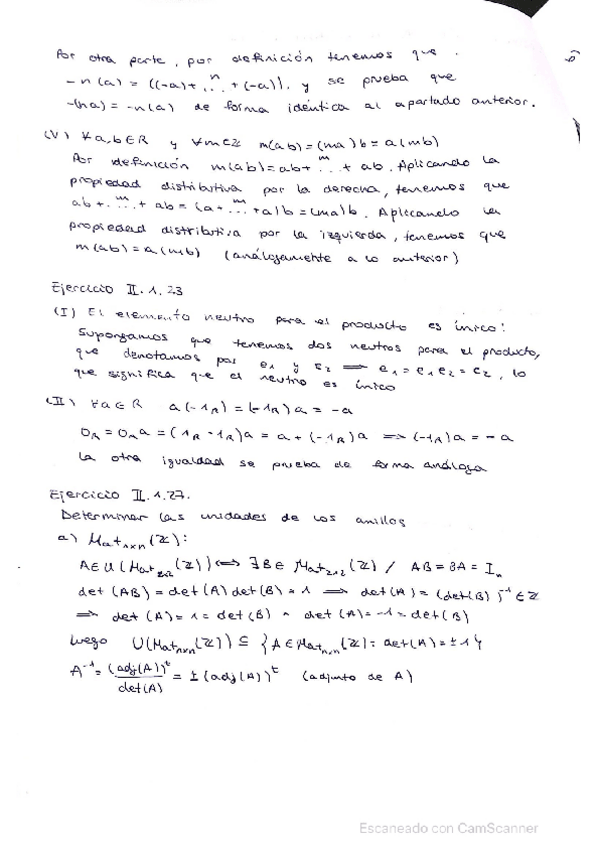 Por otra parte, por definición tenemos que
-n(a) = ((-a)+ .ⁿ. +(-a)), y se prueba que
-(na) = -n(a) de forma idéntica al apartado anterior.
(V) ∀a,b∈R y ∀m∈ℤ m(ab)=(ma)b=a(mb)
Por definición m(ab)=ab+ .ᵐ. + ab. Aplicando la
propiedad distributiva por la derecha, tenemos que
ab+ .ᵐ. + ab = (a+ .ᵐ. +a)b=(ma)b. Aplicando la
propiedad distributiva por la izquierda, tenemos que
m(ab)=a(mb) (análogamente a lo anterior)
Ejercicio II.1.23
(I) El elemento neutro para el producto es único:
Supongamos que tenemos dos neutros para el producto,
que denotamos por e₁ y e₂ ⟹ e₁=e₁e₂=e₂, lo
que significa que el neutro es único
(II) ∀a∈R a(-1_R)=(-1_R)a=-a
0_R=0_R a=(1_R-1_R)a=a+(-1_R)a ⟹(-1_R)a=-a
La otra igualdad se prueba de forma análoga
Ejercicio II.1.27.
Determinar las unidades de los anillos
a) Mat_{n×n}(ℤ):
A∈U(Mat_{2×2}(ℤ))⟺∃B∈Mat_{2×2}(ℤ) / AB=BA=I_n
det(AB)=det(A)det(B)=1 ⟹ det(A)=(det(B))⁻¹∈ℤ
⟹ det(A)=1=det(B) ^ det(A)=-1=det(B)
Luego U(Mat_{n×n}(ℤ)) ⊆ {A∈Mat_{n×n}(ℤ): det(A)=±1}
A⁻¹=(adj(A))ᵗ/det(A)=±(adj(A))ᵗ (adjunto de A)
Escaneado con CamScanner